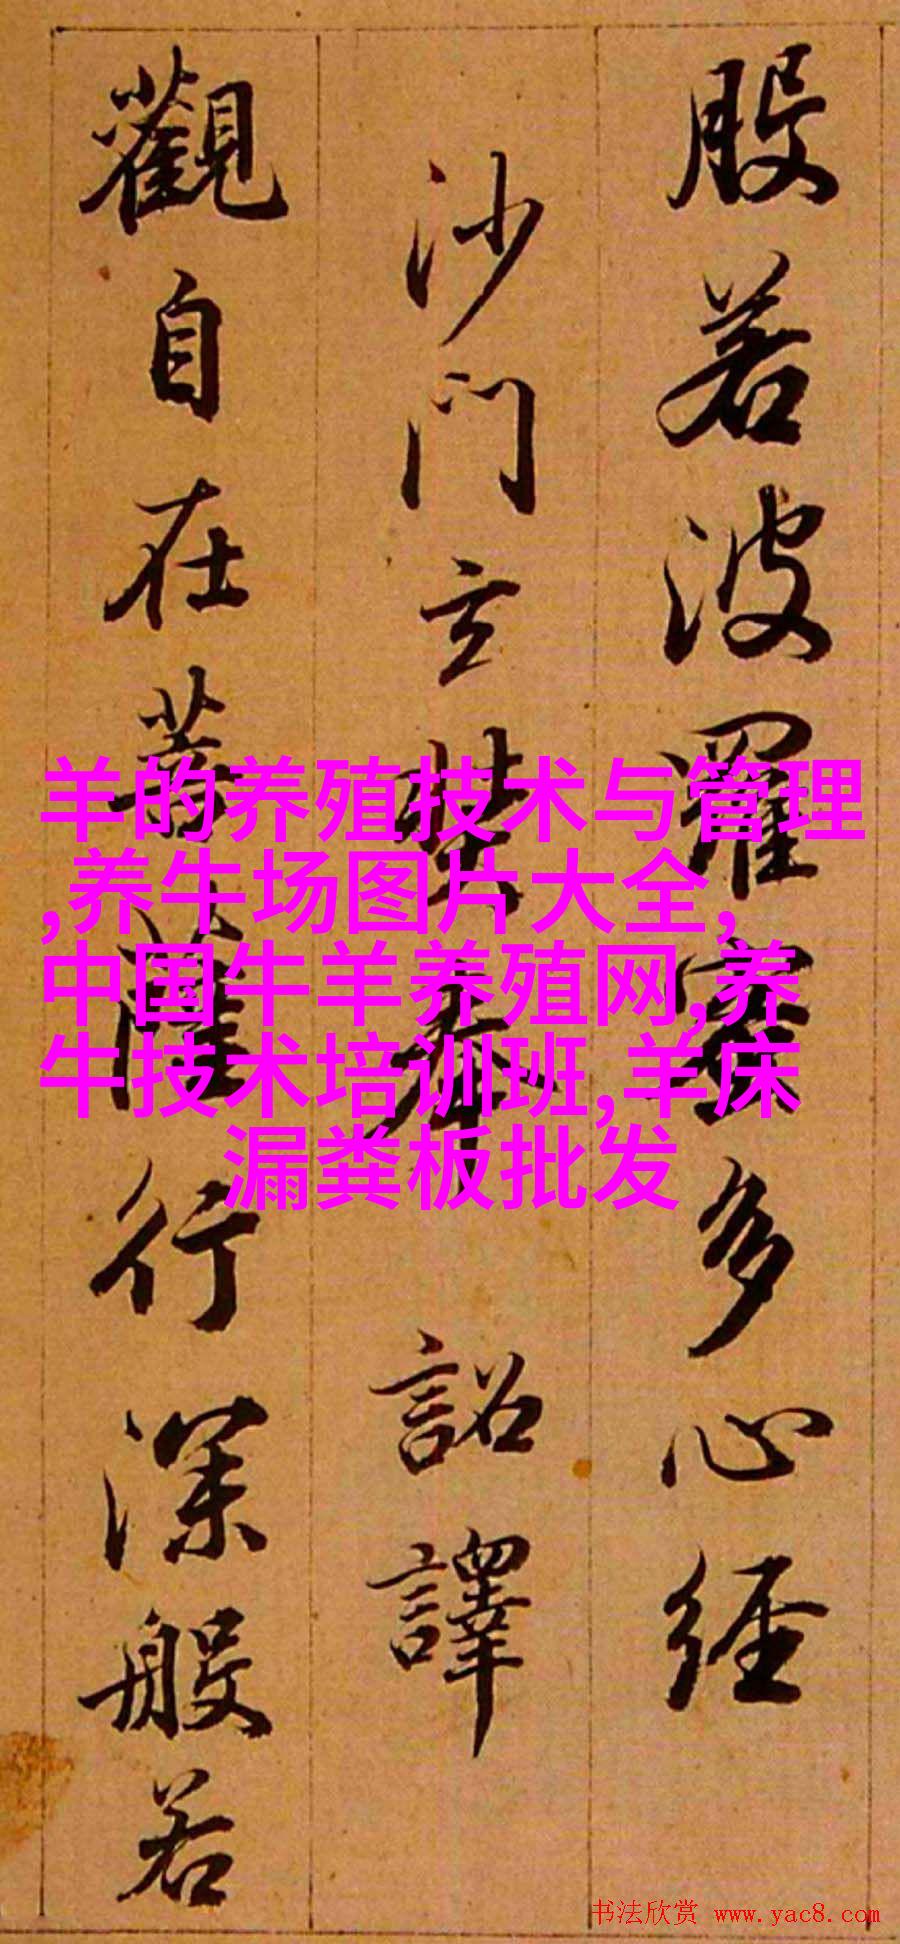 般若波羅蜜多心經
沙門玄奘奉 詔譯
觀自在菩薩行深般若
羊的养殖技术与管理
,养牛场图片大全,
中国牛羊养殖网,养
牛技术培训班,羊床
漏粪板批发
书法欣赏 www.yac8.com